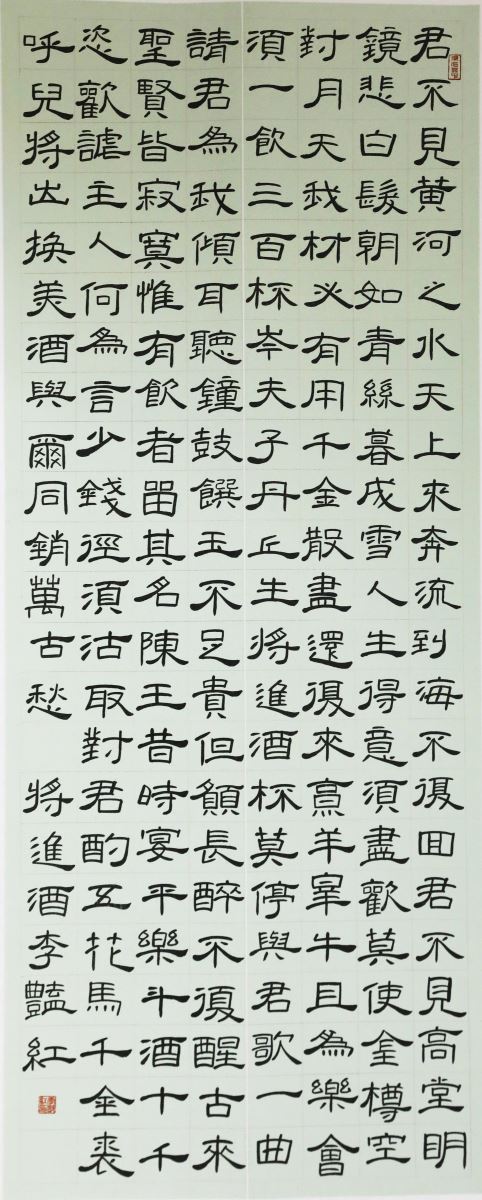 君不見黃河之水天上來奔流到海不復回君不見高堂明
鏡悲白髮朝如青絲暮成雪人生得意須盡歡莫使金樽空
對月天我材必有用千金散盡還復來烹羊宰牛且為樂會
須一飲三百杯岑夫子丹丘生將進酒杯莫停與君歌一曲
請君為我傾耳聽鐘鼓饌玉不足貴但願長醉不復醒古來
聖賢皆寂寞惟有飲者留其名陳王昔時宴平樂斗酒十千
恣歡謔主人何為言少錢徑須沽取對君酌五花馬千金裘
呼兒將出換美酒與爾同銷萬古愁 將進酒李豔紅